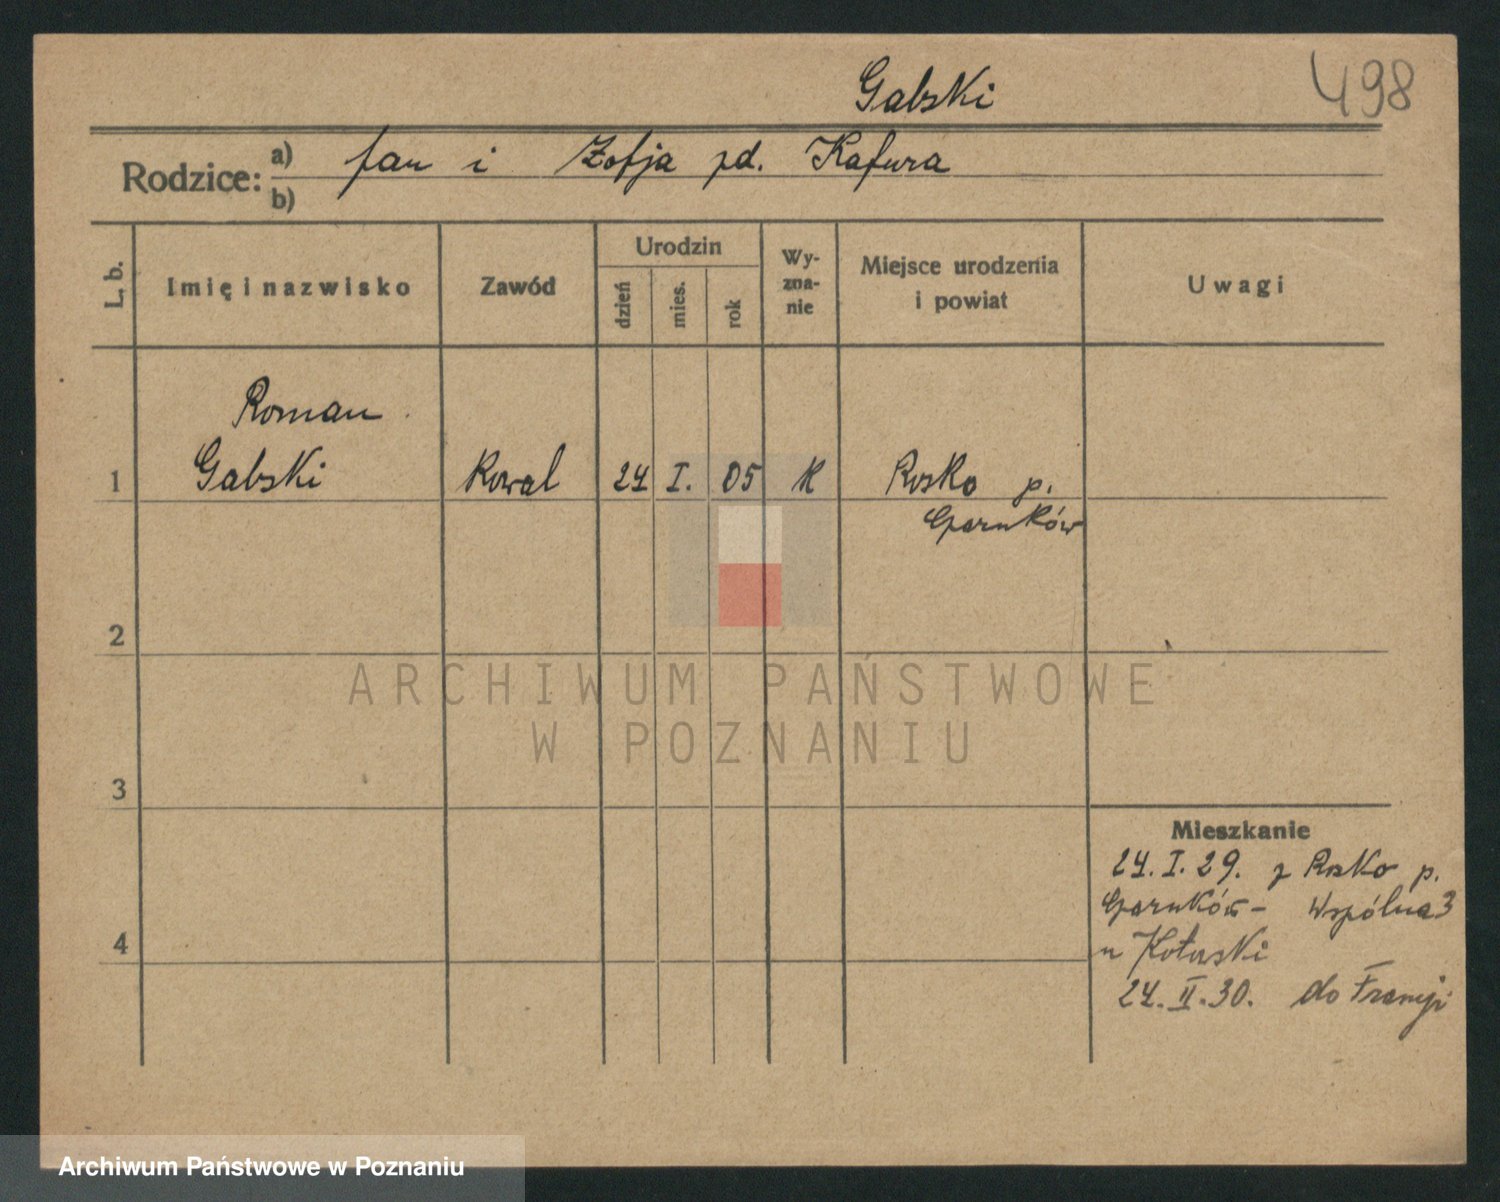 Gabski
498
Rodzice: a) Jan i Zofja zd. Kafura
b)
L. b.
Imię i nazwisko
Zawód
Urodzin
dzień
mies.
rok
Wy-
zna-
nie
Miejsce urodzenia
i powiat
Uwagi
Roman
1 Gabski Kowal 24 I. 05 K Rosko p.
Czarnków
2
ARCHIWUM PAŃSTWOWE
W POZNANIU
3
Mieszkanie
24. I. 29. z Rosko p.
Czarnków - Wspólna 3
u Kotowski
4
24. II. 30. do Francji
Archiwum Państwowe w Poznaniu